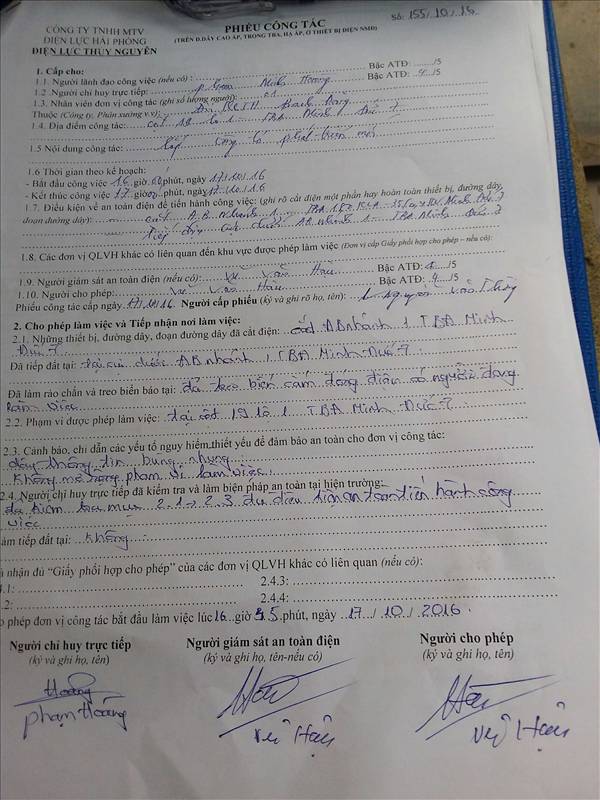 CÔNG TY TNHH MTV
ĐIỆN LỰC HẢI PHÒNG
ĐIỆN LỰC THỦY NGUYÊN
PHIẾU CÔNG TÁC
Số: 155/10/16
(TRÊN Đ.DÂY CAO ÁP, TRONG TBA, HẠ ÁP, Ở THIẾT BỊ ĐIỆN NMĐ)
1. Cấp cho:
1.1. Người lãnh đạo công việc (nếu có): Bậc ATĐ: /5
1.2 Người chỉ huy trực tiếp: Phạm Minh Hoàng Bậc ATĐ: 4/5
1.3. Nhân viên đơn vị công tác (ghi số lượng người): 01
Thuộc (Công ty, Phân xưởng v.v): Đội Bạch Đằng
1.4. Địa điểm công tác: cột 19 lộ 1 TBA Minh Đức 7
1.5 Nội dung công tác: lắp công tơ phát triển mới
1.6 Thời gian theo kế hoạch:
- Bắt đầu công việc 16 giờ phút, ngày 17/10/16
- Kết thúc công việc 17 giờ phút, ngày 17/10/16
1.7. Điều kiện về an toàn điện để tiến hành công việc: (ghi rõ cắt điện một phần hay hoàn toàn thiết bị, đường dây,
đoạn đường dây): cắt AB nhánh 1 TBA Minh Đức 7
Tiếp địa dưới AB nhánh 1 TBA Minh Đức 7
1.8. Các đơn vị QLVH khác có liên quan đến khu vực được phép làm việc (Đơn vị cấp Giấy phối hợp cho phép - nếu có):
1.9. Người giám sát an toàn điện (nếu có): Vũ Văn Hậu Bậc ATĐ: /5
1.10. Người cho phép: Vũ Văn Hậu Bậc ATĐ: 4/5
Phiếu công tác cấp ngày 17/10/16 Người cấp phiếu (ký và ghi rõ họ, tên): Nguyễn Văn
2. Cho phép làm việc và Tiếp nhận nơi làm việc:
2.1. Những thiết bị, đường dây, đoạn đường dây đã cắt điện: cắt AB nhánh 1 TBA Minh
Đức 7
Đã tiếp đất tại: tại dưới AB nhánh 1 TBA Minh Đức 7
Đã làm rào chắn và treo biển báo tại: đã treo biển cấm đóng điện có người đang
làm việc
2.2. Phạm vi được phép làm việc: tại cột 19 lộ 1 TBA Minh Đức 7
2.3. Cảnh báo, chỉ dẫn các yếu tố nguy hiểm thiết yếu để đảm bảo an toàn cho đơn vị công tác:
dây thông tin bùng nhùng
Không mở rộng phạm vi làm việc
2.4. Người chỉ huy trực tiếp đã kiểm tra và làm biện pháp an toàn tại hiện trường:
đã kiểm tra mục 2.1 -> 2.3 đủ điều kiện an toàn tiến hành công
việc
àm tiếp đất tại: không
à nhận đủ “Giấy phối hợp cho phép” của các đơn vị QLVH khác có liên quan (nếu có):
.1: 2.4.3:
.2: 2.4.4:
o phép đơn vị công tác bắt đầu làm việc lúc 16 giờ phút, ngày 17/10/2016
Người chỉ huy trực tiếp
(ký và ghi họ, tên)
Người giám sát an toàn điện
(ký và ghi họ, tên-nếu có)
Người cho phép
(ký và ghi họ, tên)
Hoàng
phạm Hoàng
Vũ Hậu
Vũ Hậu